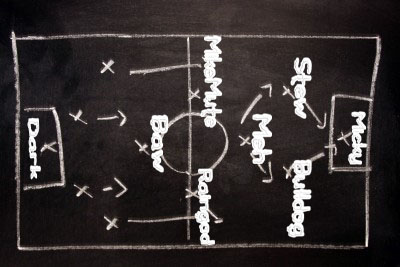 Dark
Baw
MikeMute
Raingod
Meh
Stew
Bulldog
Micky